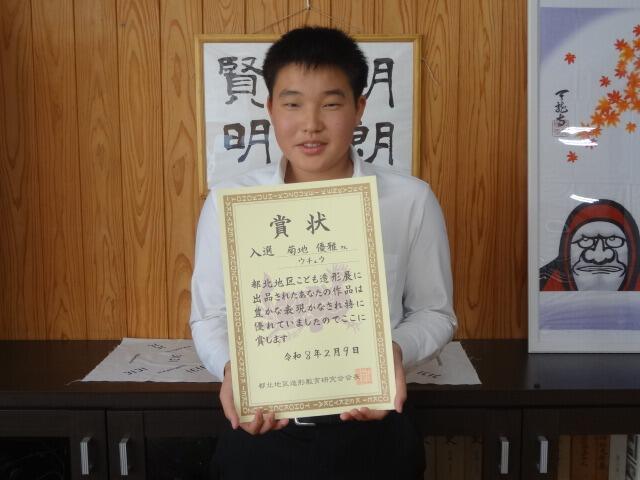 賢 明
明 朗
賞状
入選 菊地 優雅さん
ウチュウ
都北地区こども造形展に
出品されたあなたの作品は
豊かな表現がなされ特に
優れていましたのでここに
賞します
令和8年2月9日
都北地区造形教育研究会会長